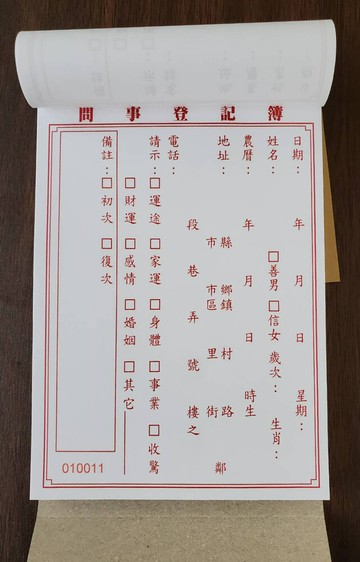 問事登記簿
日期： 年 月 日 星期：
姓名： □善男 □信女 歲次： 生肖：
農曆： 年 月 日 時生
地址： 縣市 鄉鎮市區 村里 路街 鄰
段 巷 弄 號 樓之
電話：
請示：□運途 □家運 □身體 □事業 □收驚
□財運 □感情 □婚姻 □其它
備註：□初次 □復次
010011